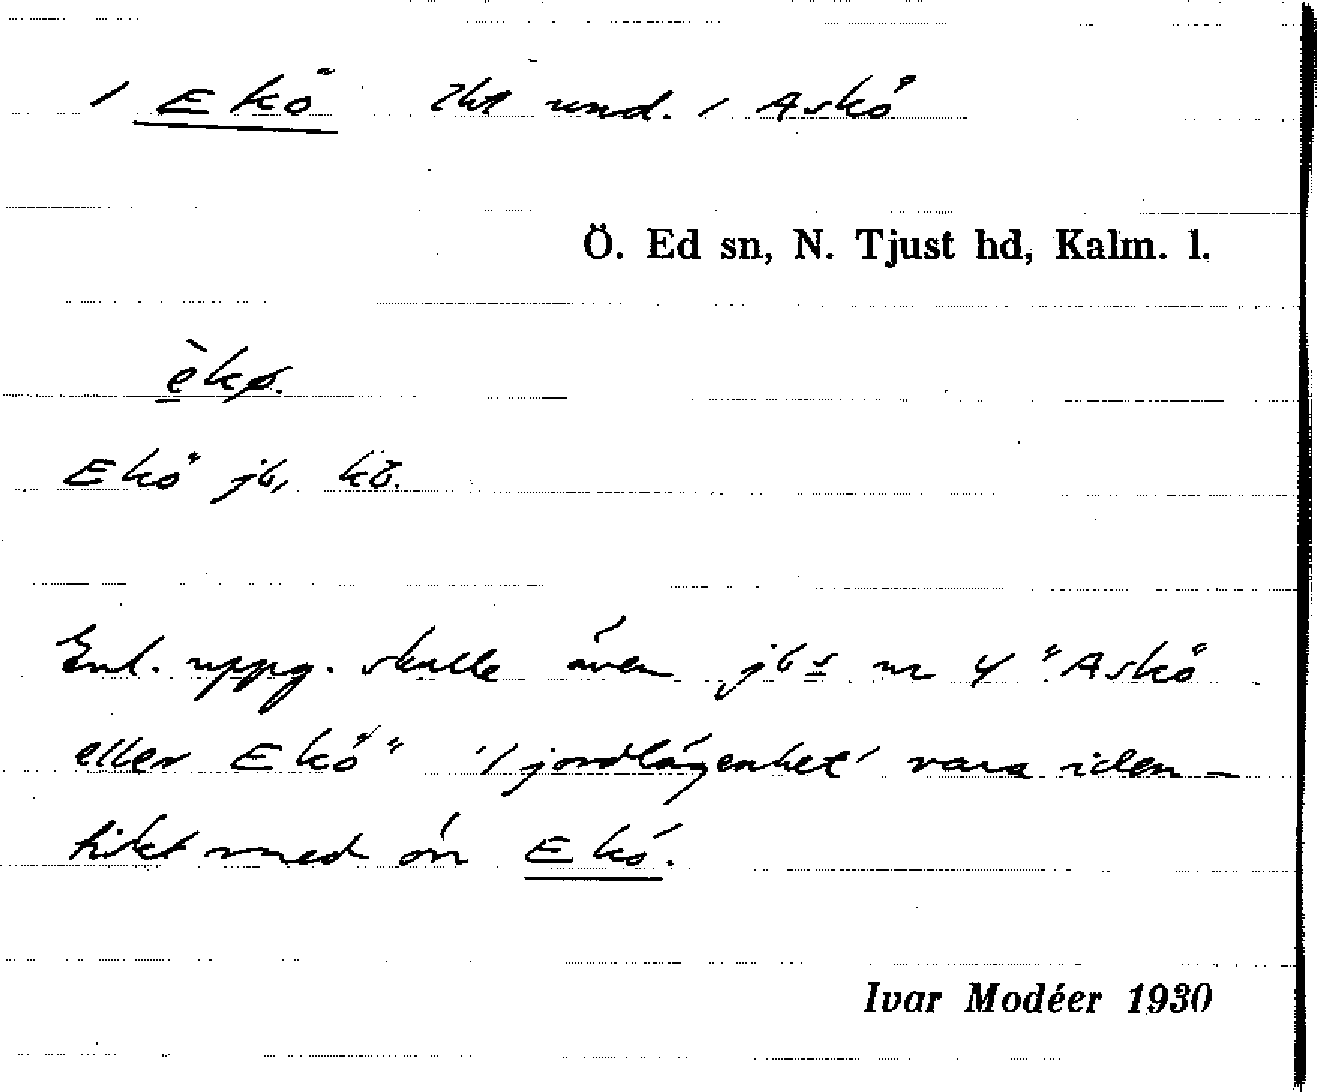 / Ekö lht und. / Askö
Ö. Ed sn, N. Tjust hd, Kalm. l.
èkø.
Ekö jb, kö.
Enl. uppg. skulle även jbs nr 4 "Askö
eller Ekö" '/ jordlägenhet' vara iden-
tikt med ön Ekö.
Ivar Modéer 1930